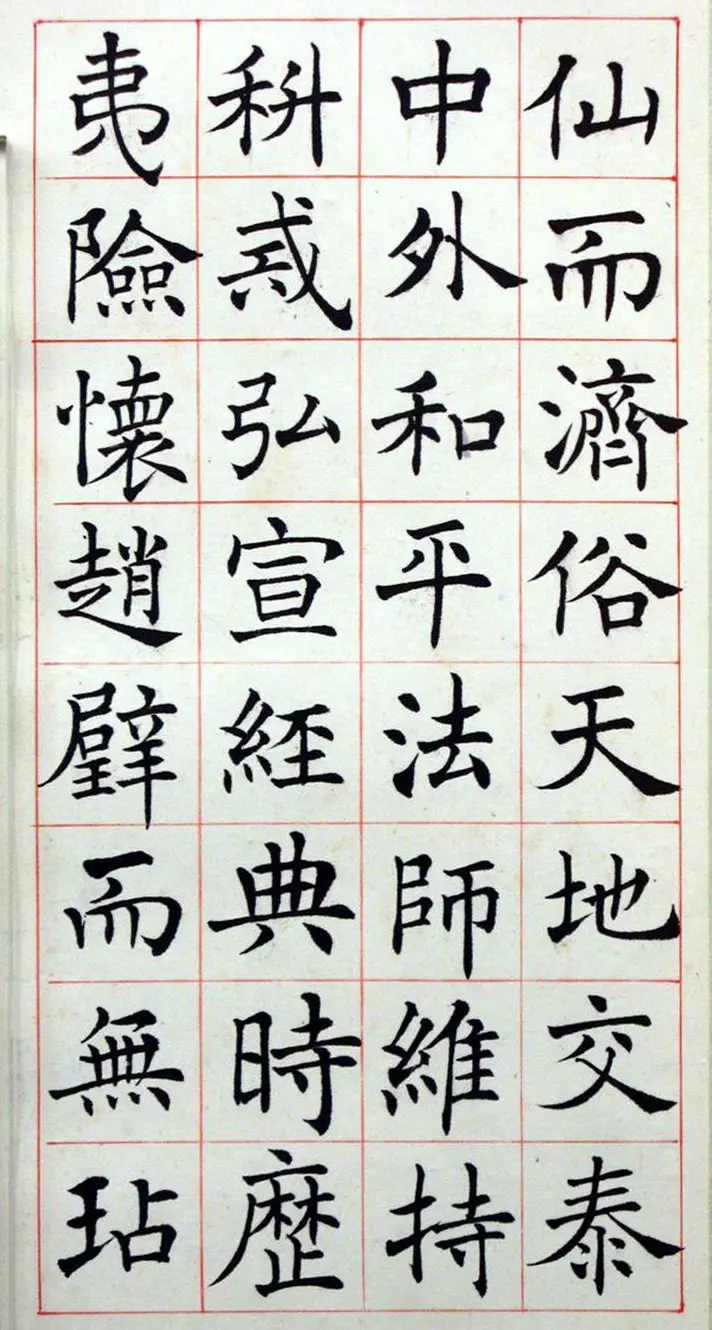 仙而濟俗天地交泰
中外和平法師維持
科戒弘宣經典時歷
夷險懷趙璧而無玷